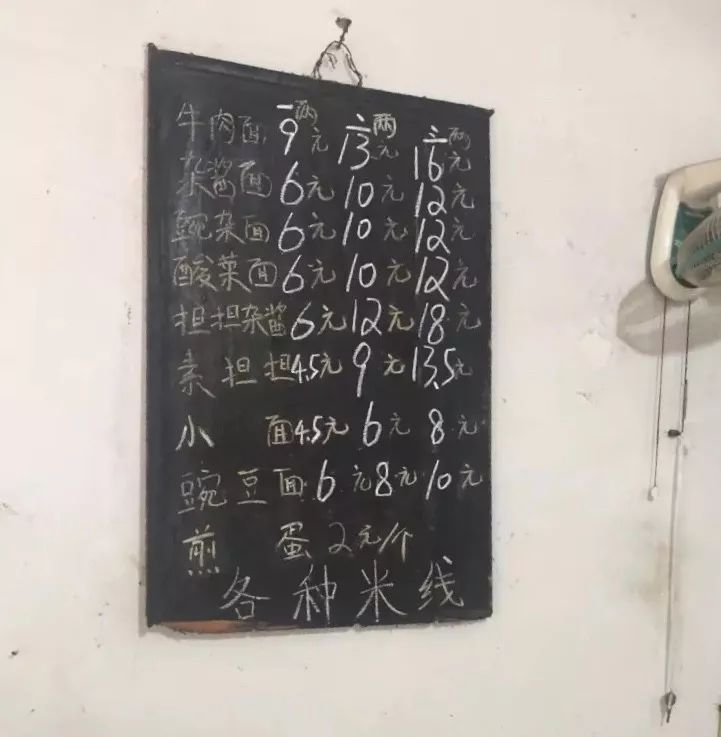 一两 二两 三两
牛肉面 9元 13元 16元
杂酱面 6元 10元 12元
豌杂面 6元 10元 12元
酸菜面 6元 10元 12元
担担杂酱 6元 12元 18元
素担担 4.5元 9元 13.5元
小面 4.5元 6元 8元
豌豆面 6元 8元 10元
煎蛋 2元/个
各种米线